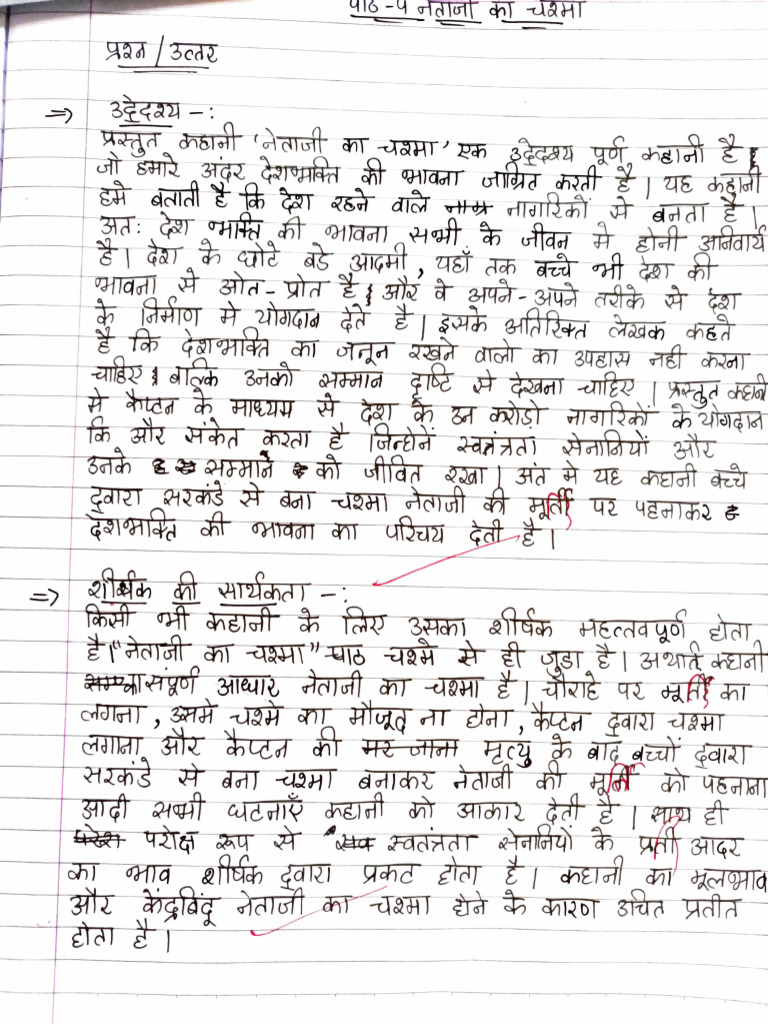 पाठ-५ नेताजी का चश्मा
प्रश्न / उत्तर
=> उद्देदश्य -:
प्रस्तुत कहानी 'नेताजी का चश्मा' एक उद्देदश्य पूर्ण कहानी है
जो हमारे अंदर देशभक्ति की भावना जाग्रित करती है | यह कहानी
हमे बताती है कि देश रहने वाले नागरिकों से बनता है |
अतः देश भक्ति की भावना सभी के जीवन मे होनी अनिवार्य
है | देश के छोटे बडे आदमी, यहाँ तक बच्चे भी देश की
भावना से ओत-प्रोत है और वे अपने-अपने तरीके से देश
के निर्माण मे योगदान देते है | इसके अतिरिक्त लेखक कहते
है कि देशभक्ति का जनून रखने वालो का उपहास नही करना
चाहिए बल्कि उनको सम्मान दृष्टि से देखना चाहिए | प्रस्तुत कहानी
मे कैप्टन के माध्यम से देश के उन करोड़ो नागरिकों के योगदान
कि और संकेत करता है जिन्होनें स्वतंत्रता सेनानियों और
उनके सम्मान को जीवित रखा | अंत मे यह कहानी बच्चे
द्वारा सरकंडे से बना चश्मा नेताजी की मूर्ती पर पहनाकर
देशभक्ति की भावना का परिचय देती है |
=> शीर्षक की सार्थकता -:
किसी भी कहानी के लिए उसका शीर्षक महत्तवपूर्ण होता
है | "नेताजी का चश्मा" पाठ चश्मे से ही जुडा है | अर्थात कहानी
का संपूर्ण आधार नेताजी का चश्मा है | चौराहे पर मूर्ती का
लगना, उसमे चश्मे का मौजूद ना होना, कैप्टन द्वारा चश्मा
लगाना और कैप्टन की मृत्यु के बाद बच्चों द्वारा
सरकंडे से बना चश्मा बनाकर नेताजी की मूर्ती को पहनाना
आदी सभी घटनाएँ कहानी को आकार देती है | साथ ही
परोक्ष रूप से स्वतंत्रता सेनानियों के प्रती आदर
का भाव शीर्षक द्वारा प्रकट होता है | कहानी का मूलभाव
और केंद्रबिंदू नेताजी का चश्मा होने के कारण उचित प्रतीत
होता है |